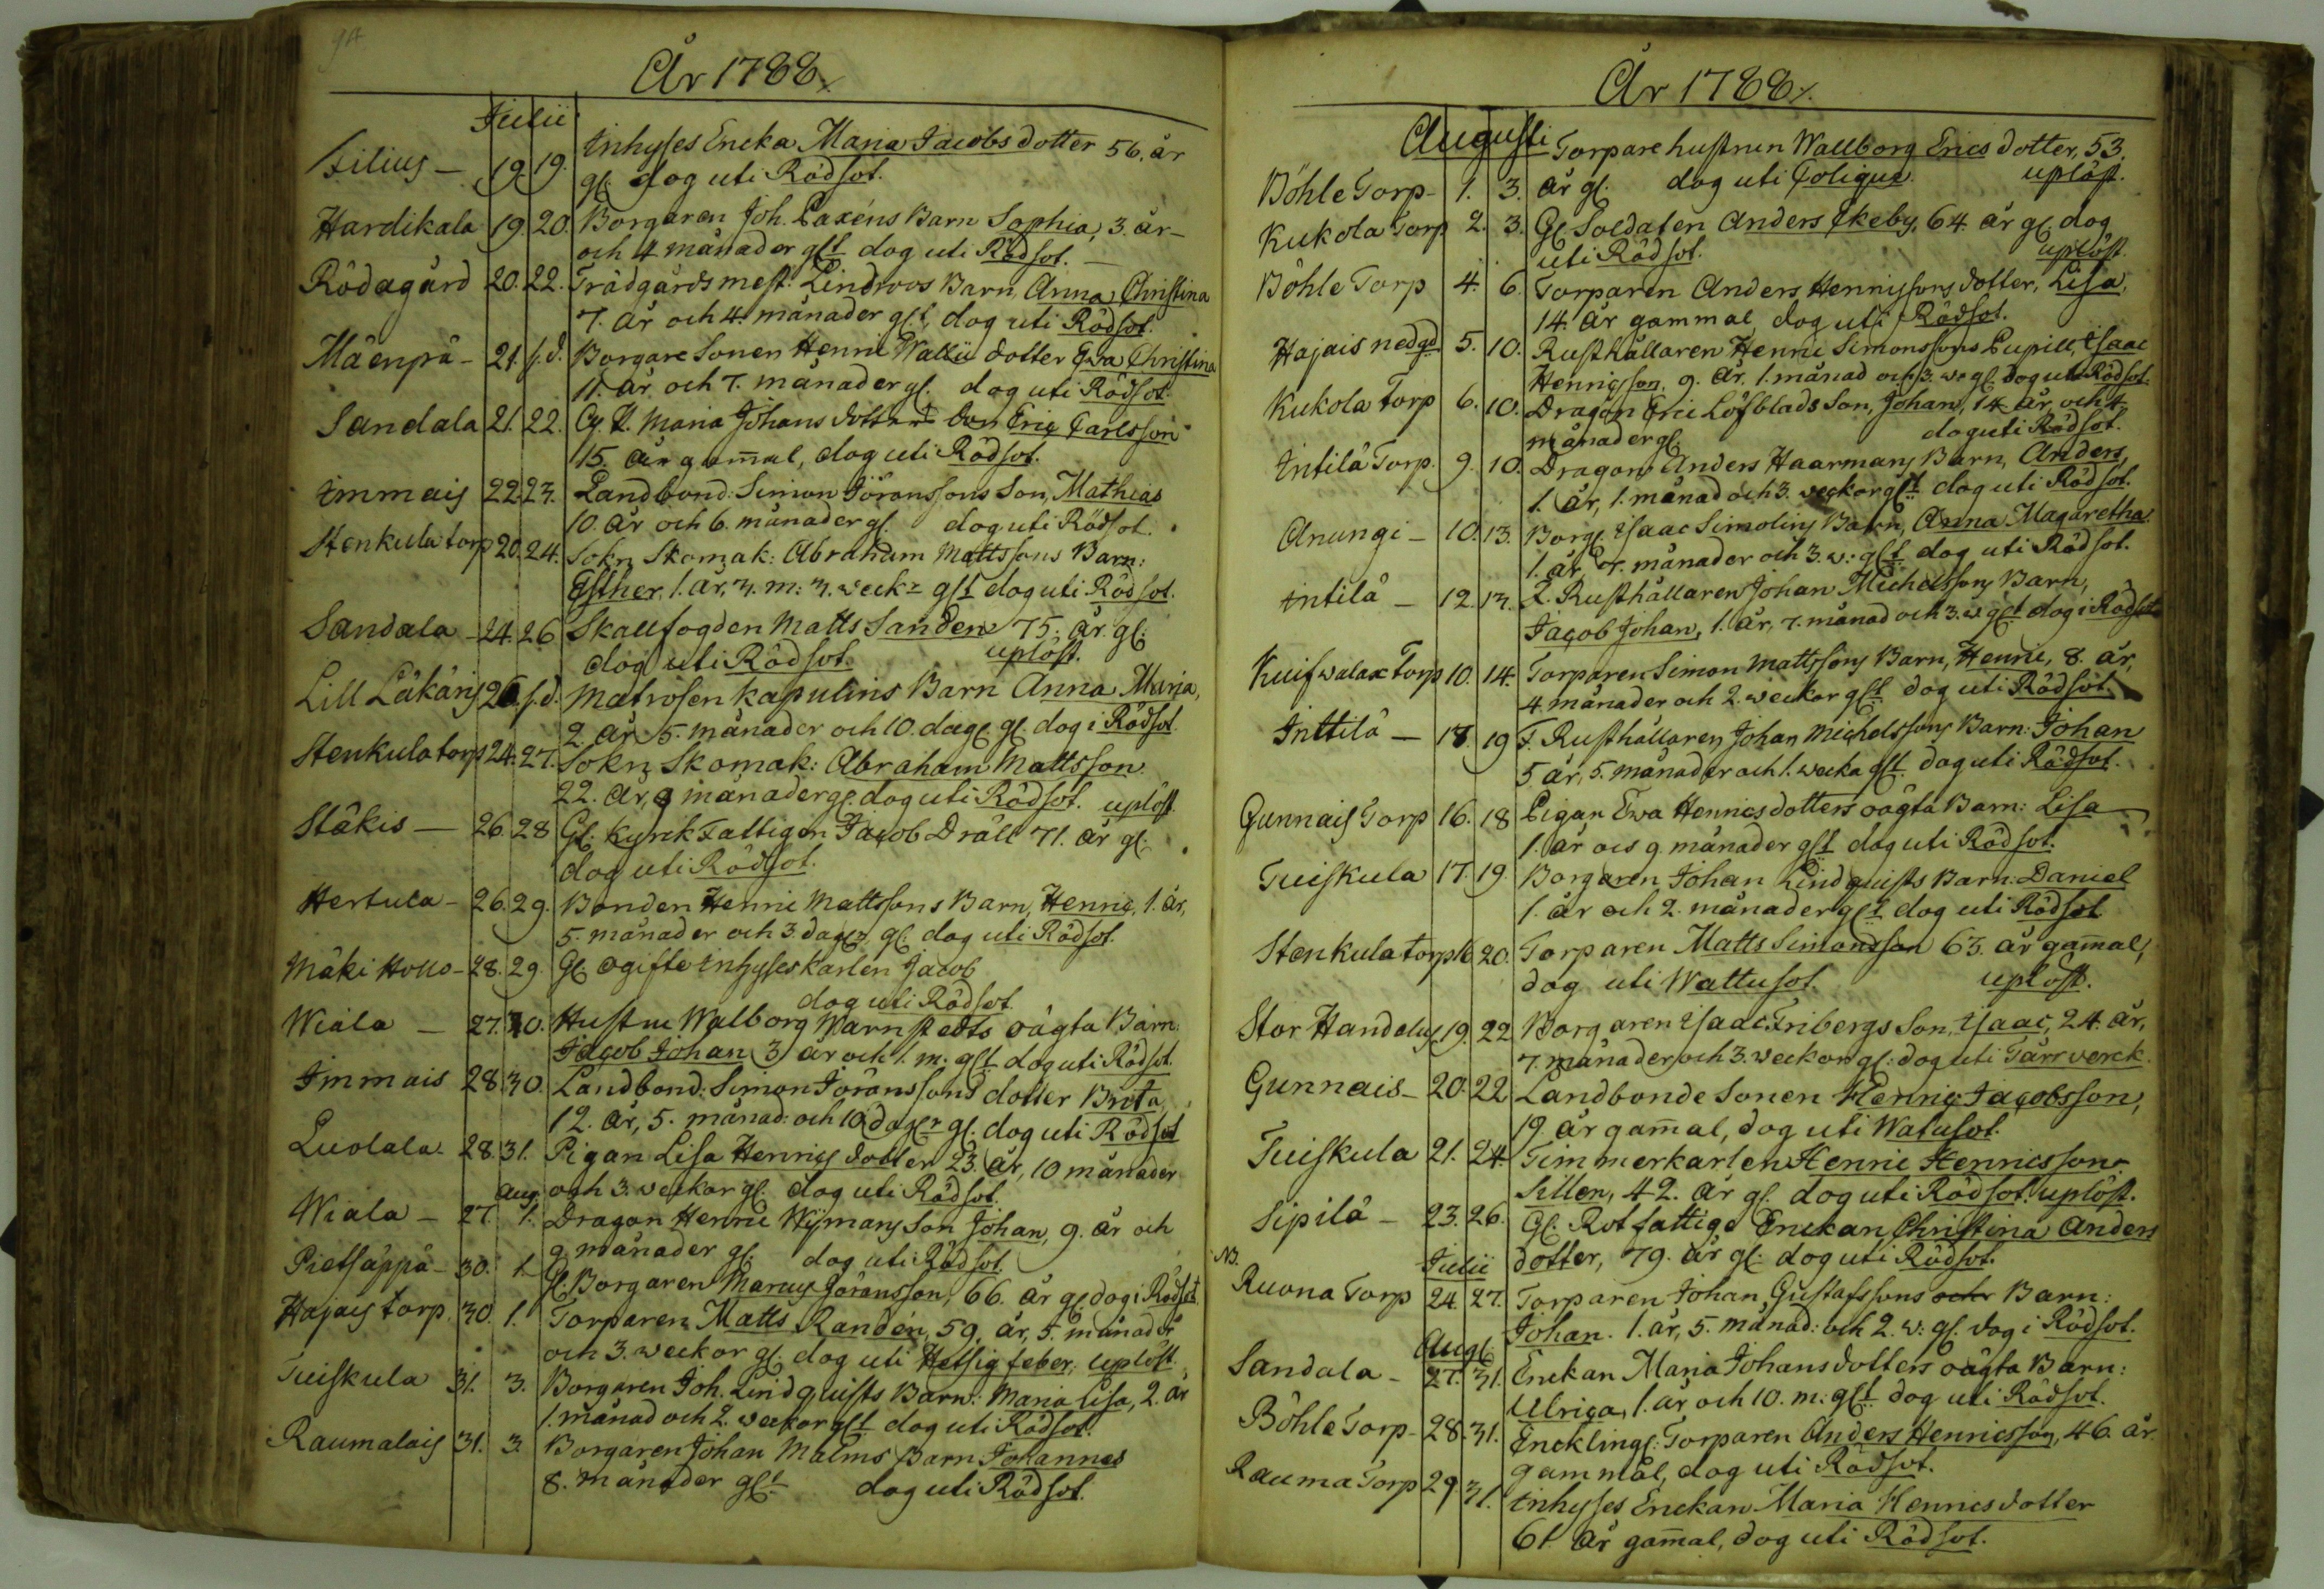 94
År 1788.
Julii
Inhyses Encka Maria Jacobs dotter 56. år
Silius - 19. 19. gl. dog uti Rödsot.
Hardikala 19. 20. Borgaren Joh. Paxéns Barn Sophia, 3. år
och 4 månader glt dog uti Rödsot.
Rödagård 20. 22. Trädgårdsmest. Lindroos Barn Anna Christina
7. år och 4. månader glt dog uti Rödsot.
Mäenpä - 21. s.d. Borgare Sonen Henric Wallii dotter Eva Christina
11. år och 7. månader gl. dog uti Rödsot.
Sandala 21. 22. Maria Johans dotter Son Eric Carlsson
15. år gammal, dog uti Rödsot.
Immais 22. 23. Landbond: Simon Jöranssons Son, Mathias
10. år och 6. månader gl. dog uti Rödsot.
Stenkula torp 20. 24. Sokn Skomak: Abraham Mattssons Barn:
Esther, 1. år, 3. m: 3. veck. glt dog uti Rödsot.
Sandala - 24. 26 Skallfogden Matts Sanden 75. år gl.
dog uti Rödsot. uplöst.
Lill Läkäris 26. s.d. Matrosen Kapulins Barn Anna Maria,
2. år 5. månader och 10. dag. gl. dog i Rödsot
Stenkula torp 24. 27. Sokn Skomak: Abraham Mattsson
22. år, 9 månader gl. dog uti Rödsot. uplöst
Stäkis - 26. 28 Gl. Kyrck Fattigen Jacob Dräll 71. år gl.
dog uti Rödsot.
Hertula - 26. 29. Bonden Henric Mattssons Barn, Henric, 1. år,
5. månader och 3. dagar gl. dog uti Rödsot.
Mäki Hollo - 28. 29. Gl. ogifte Inhyses karlen Jacob
dog uti Rödsot
Wiala - 27. 30. Hustru Walborg Warnstedts oägta Barn.
Jacob Johan 3 år och 1. m. glt dog uti Rödsot.
Immais 28. 30. Landbond: Simon Jöranssons dotter Brita,
12. år, 5. månad: och 10 dagar gl. dog uti Rödsot
Luolala. 28. 31. Pigan Lisa Henrics dotter 23. år, 10 månader
Aug. och 3. veckor gl. dog uti Rödsot.
Wiala - 27. 1. Dragon Henric Wijmans Son Johan, 9. år och
9 månader gl. dog uti Rödsot.
Pietsäppä - 30. 1. Gl. Borgaren Marcus Jöransson, 66. år gl. dog i Rödsot
Hajais torp. 30. 1. Torparen Matts Randén, 59. år, 5. månader
och 3. veckor gl. dog uti Hetsig feber, uplöst
Tuiskula 31. 3. Borgaren Joh. Lindquists Barn: Maria Lisa, 2. år
1. månad och 2. veckor glt dog uti Rödsot.
Raumalais 31. 3. Borgaren Johan Malms Barn Johannes
8. månader glt dog uti Rödsot.
År 1788.
Augusti
Torpare hustrun Wallborg Erics dotter, 53.
Böhle Torp - 1. 3. år gl. dog uti Colique. uplöst.
Kukola Torp 2. 3. Gl. Soldaten Anders Ekeby, 64 år gl. dog
uti Rödsot. uplöst.
Böhle Torp 4. 6. Torparen Anders Henrissons dotter, Lisa,
14. år gammal, dog uti Rödsot.
Hajais nedgd 5. 10. Rusthållaren Henric Simonssons Pupill, Isaac
Henricsson, 9. år, 1. månad och 3. v. gl. dog uti Rödsot.
Kukola Torp 6. 10. Dragon Eric Löfblads Son, Johan, 14 år och 4.
månader gl. dog uti Rödsot.
Intilä Torp. 9. 10. Dragon Anders Haarmans Barn, Anders,
1. år, 1. månad och 3. veckor glt dog uti Rödsot.
Anungi - 10. 13. Borg. Isaac Simolins Barn, Anna Magaretha
1. år, 7. månader och 3. v: glt dog uti Rödsot.
Intilä - 12. 13. Rusthållaren Johan Michelssons Barn,
Jacob Johan, 1. år, 7. månad och 3. v glt dog i Rödsot
Kuifwalax Torp 10. 14. Torparen Simon Mattssons Barn, Henric, 8. år,
4. månader och 2. veckor glt dog uti Rödsot.
Inttilä - 18. 19 F. Rusthållaren Johan Michelssons Barn: Johan
5 år, 5. månader och 1. vecka glt dog uti Rödsot.
Gunnais Torp 16. 18 Pigan Ewa Henricsdotters oägta Barn: Lisa
1. år och 9. månader glt dog uti Rödsot.
Tuiskula 17. 19. Borgaren Johan Lindquists Barn: Daniel
1. år och 2. månader glt dog uti Rödsot
Stenkula torp 16 20. Torparen Matts Simonsson 63. år gammal,
dog uti Wattusot. uplöst.
Stor Handelus 19. 22 Borgaren Isaac Fribergs Son, Isaac, 24. år,
7. månader och 3. veckor gl. dog uti Tärrverck.
Gunnais - 20. 22 Landbonde Sonen Henric Jacobsson,
19. år gammal, dog uti Watusot.
Tuiskula 21. 24 Timmerkarlen Henric Henricsson
Sillen, 42. år gl. dog uti Rödsot. uplöst.
Sipilä - 23. 26. Gl. Rotfattige Enckan Christina Anders
NB. Julii dotter, 79. år gl. dog uti Rödsot.
Ruona Torp 24. 27. Torparen Johan Gustafssons och Barn:
Johan. 1. år, 5. månad: och 2. v: gl. dog i Rödsot.
Aug.
Sandala - 27. 31. Enckan Maria Johansdotters oägta Barn:
Ulrica, 1. år och 10. m: glt dog uti Rödsot.
Böhle Torp - 28. 31. Enckling. Torparen Anders Henricsson, 46. år
gammal, dog uti Rödsot.
Rauma Torp 29. 31. Inhyses Enckan Maria Henricsdotter
61 år gammal, dog uti Rödsot.